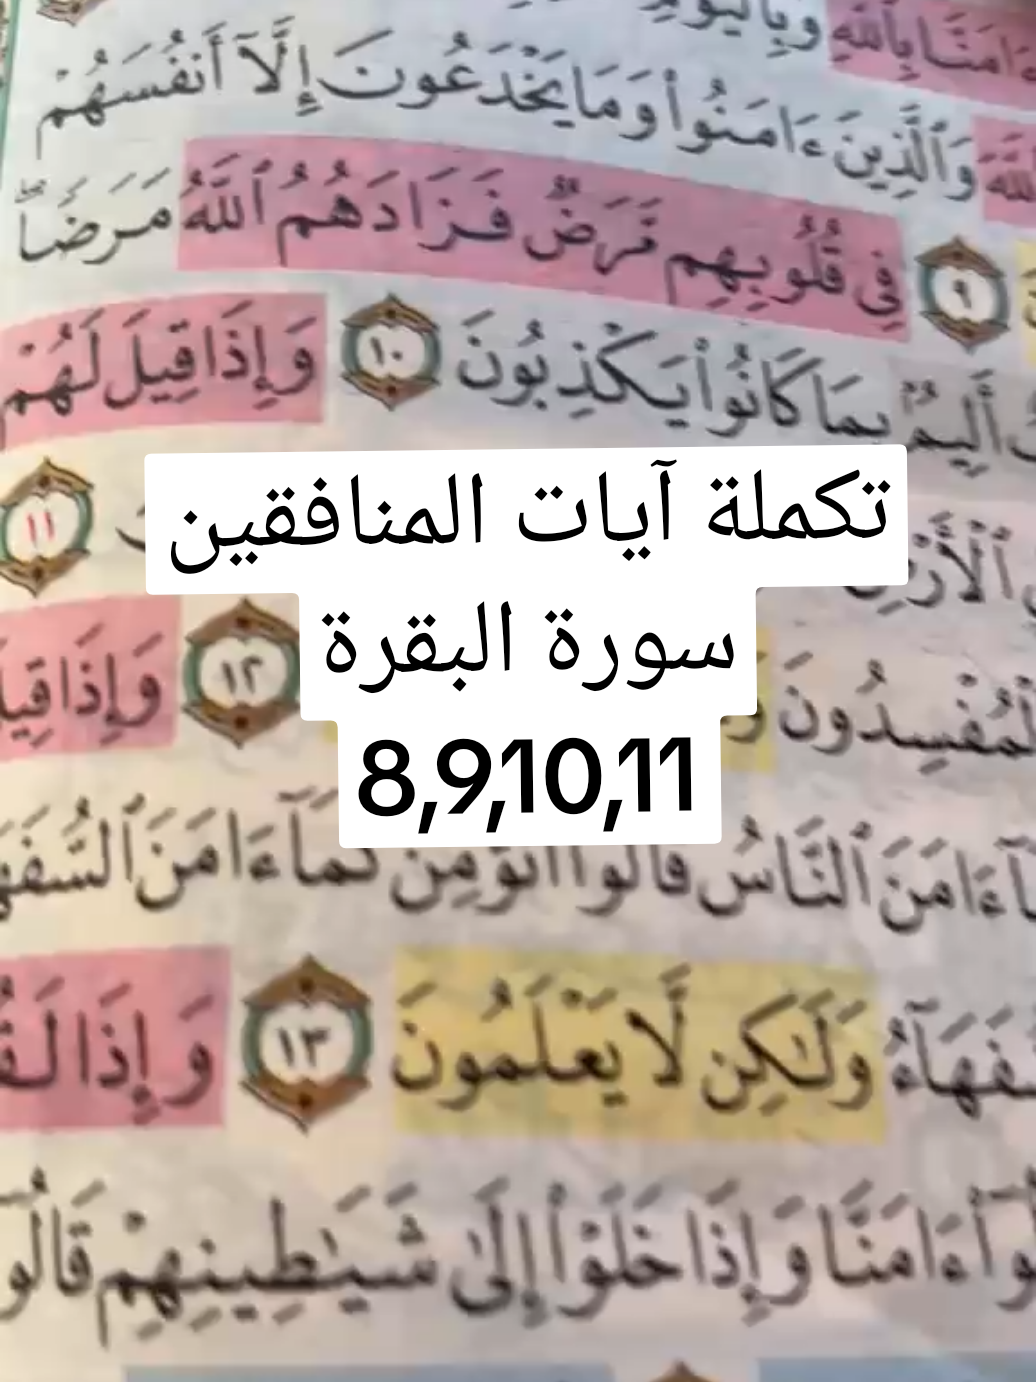 ءَامَنَّا بِٱللَّهِ وَبِٱلْيَوْمِ
ٱللَّهَ وَٱلَّذِينَ ءَامَنُوا۟ وَمَا يَخْدَعُونَ إِلَّآ أَنفُسَهُمْ
٩ فِى قُلُوبِهِم مَّرَضٌ فَزَادَهُمُ ٱللَّهُ مَرَضًا
أَلِيمٌۢ بِمَا كَانُوا۟ يَكْذِبُونَ ١٠ وَإِذَا قِيلَ لَهُمْ
ٱلْأَرْضِ ١١
تكملة آيات المنافقين
سورة البقرة
8,9,10,11
ٱلْمُفْسِدُونَ ١٢ وَإِذَا قِيلَ
ءَامَنَ ٱلنَّاسُ قَالُوٓا۟ أَنُؤْمِنُ كَمَآ ءَامَنَ ٱلسُّفَهَآءُ
وَلَٰكِن لَّا يَعْلَمُونَ ١٣ وَإِذَا
ءَامَنَّا وَإِذَا خَلَوْا۟ إِلَىٰ شَيَٰطِينِهِمْ قَالُوٓا۟